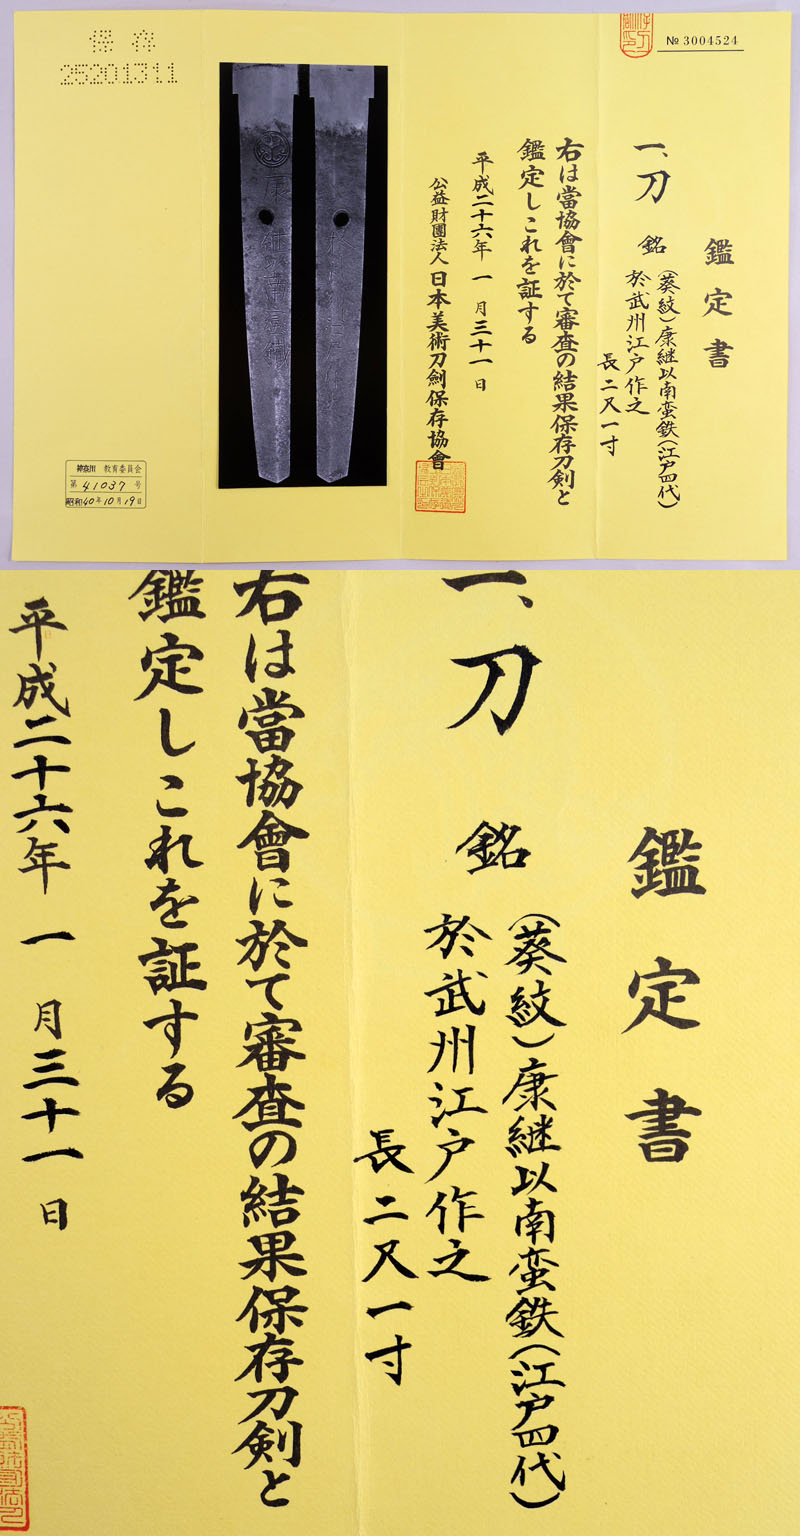 № 3004524
鑑定書
一、刀
銘
(葵紋)康継以南蛮鉄(江戸四代)
於武州江戸作之
長二尺一寸
右は當協會に於て審査の結果保存刀剣と
鑑定しこれを証する
平成二十六年 一 月 三十一 日
公益財團法人 日本美術刀劍保存協會
保存
25201311
神奈川 教育委員会
第 41037 号
昭和40年10月19日
一、刀
鑑定書
銘
(葵紋)康継以南蛮鉄(江戸四代)
於武州江戸作之
長二尺一寸
右は當協會に於て審査の結果保存刀剣と
鑑定しこれを証する
平成二十六年 一 月 三十一 日